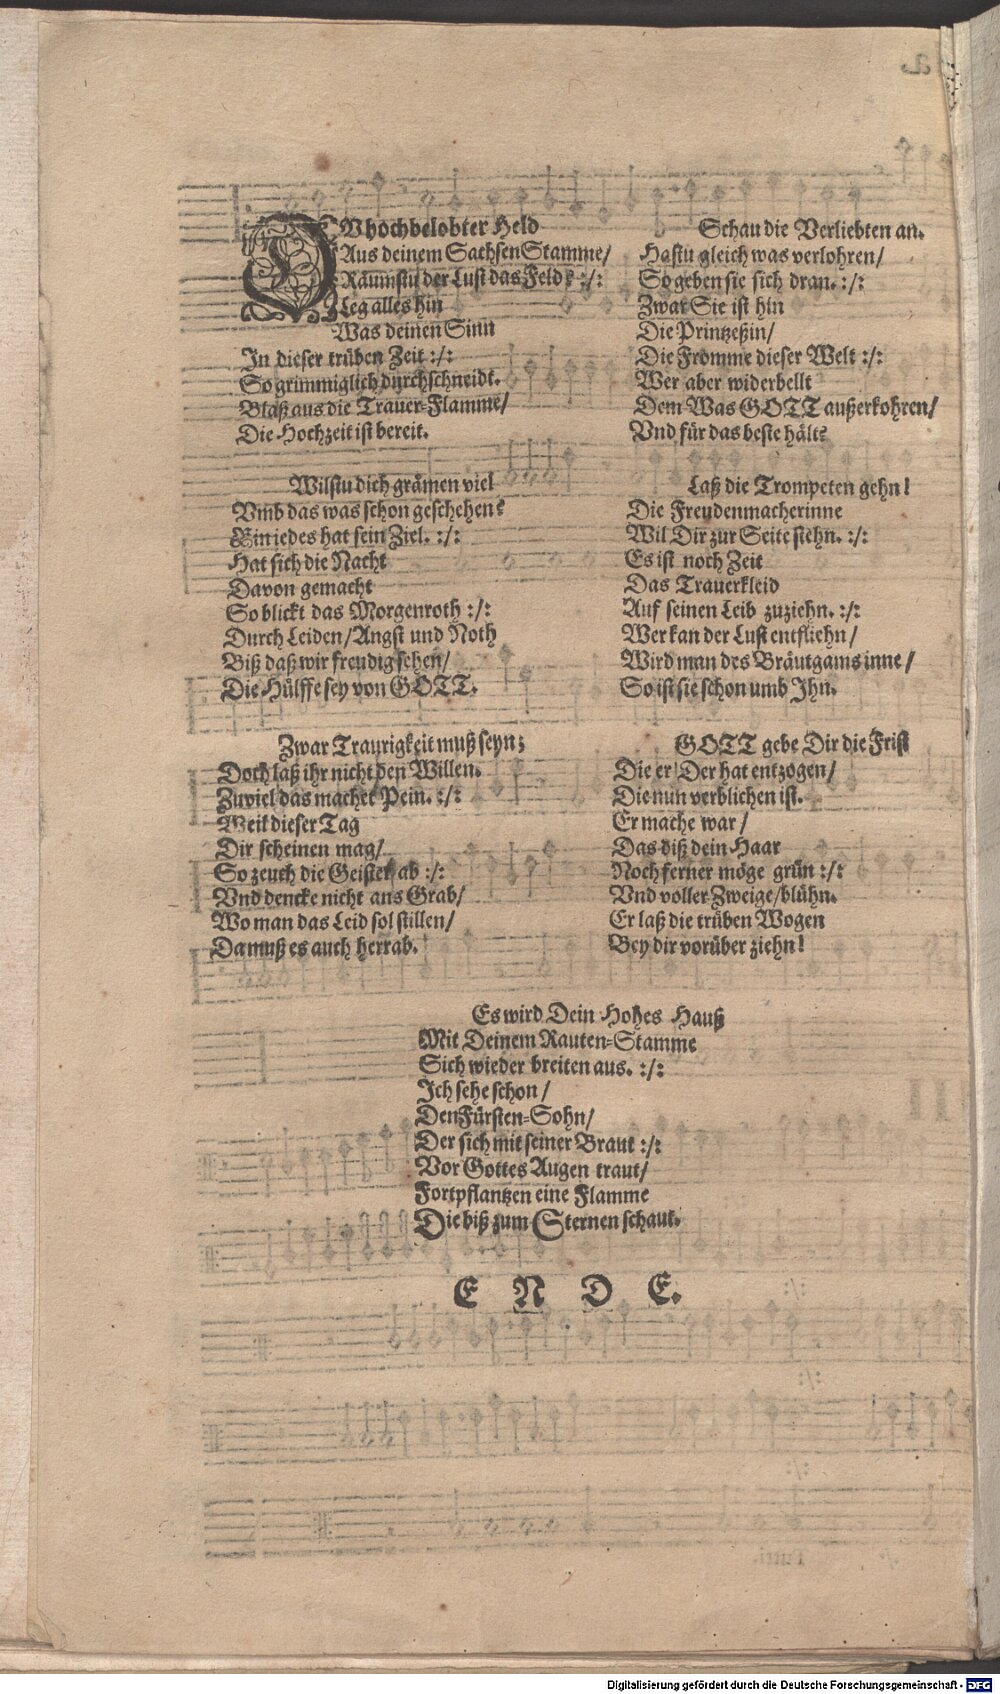 DVhochbelobter Held
Aus deinem Sachsen Stamme/
Räumstu der Lust das Feld? :/:
Leg alles hin
Was deinen Sinn
In dieser trüben Zeit :/:
So grimmiglich durchschneidt.
Blaß aus die Trauer-Flamme/
Die Hochzeit ist bereit.
Wilstu dich grämen viel
Vmb das was schon geschehen?
Ein iedes hat sein Ziel. :/:
Hat sich die Nacht
Davon gemacht
So blickt das Morgenroth :/:
Durch Leiden/Angst und Noth
Biß daß wir freudig sehen/
Die Hülffe sey von GOTT.
Zwar Traurigkeit muß seyn;
Doch laß ihr nicht den Willen.
Zuviel das machet Pein. :/:
Weil dieser Tag
Dir scheinen mag/
So zeuch die Geister ab :/:
Vnd dencke nicht ans Grab/
Wo man das Leid sol stillen/
Da muß es auch herrab.
Schau die Verliebten an.
Hastu gleich was verlohren/
So geben sie sich dran. :/:
Zwar Sie ist hin
Die Printzeßin/
Die Fromme dieser Welt :/:
Wer aber widerbellt
Dem Was GOTT außerkohren/
Vnd für das beste hält?
Laß die Trompeten gehn!
Die Freudenmacherinne
Wil Dir zur Seite stehn. :/:
Es ist noch Zeit
Das Trauerkleid
Auf seinen Leib zuziehn. :/:
Wer kan der Lust entfliehn/
Wird man des Bräutgams inne/
So ist sie schon umb Ihn.
GOTT gebe Dir die Frist
Die er Der hat entzogen/
Die nun verblichen ist.
Er mache war/
Das diß dein Haar
Noch ferner möge grün :/:
Vnd voller Zweige/blühn.
Er laß die trüben Wogen
Bey dir vorüber ziehn!
Es wird Dein Hohes Hauß
Mit Deinem Rauten-Stamme
Sich wieder breiten aus. :/:
Ich sehe schon/
Den Fürsten-Sohn/
Der sich mit seiner Braut :/:
Vor Gottes Augen traut/
Fortpflantzen eine Flamme
Die biß zum Sternen schaut.
E N D E.
Digitalisierung gefördert durch die Deutsche Forschungsgemeinschaft - DFG